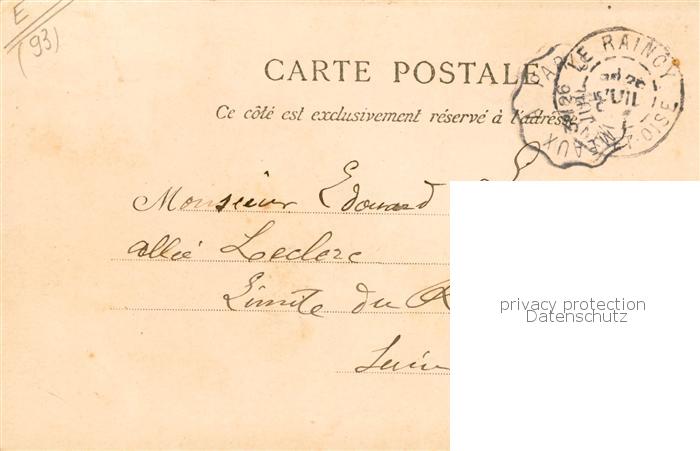 E
(93)
CARTE POSTALE
LE RAINCY
Ce côté est exclusivement réservé à l'adresse
MEAUX
Monsieur Edouard
allée Leclerc
Limite du
privacy protection
Datenschutz